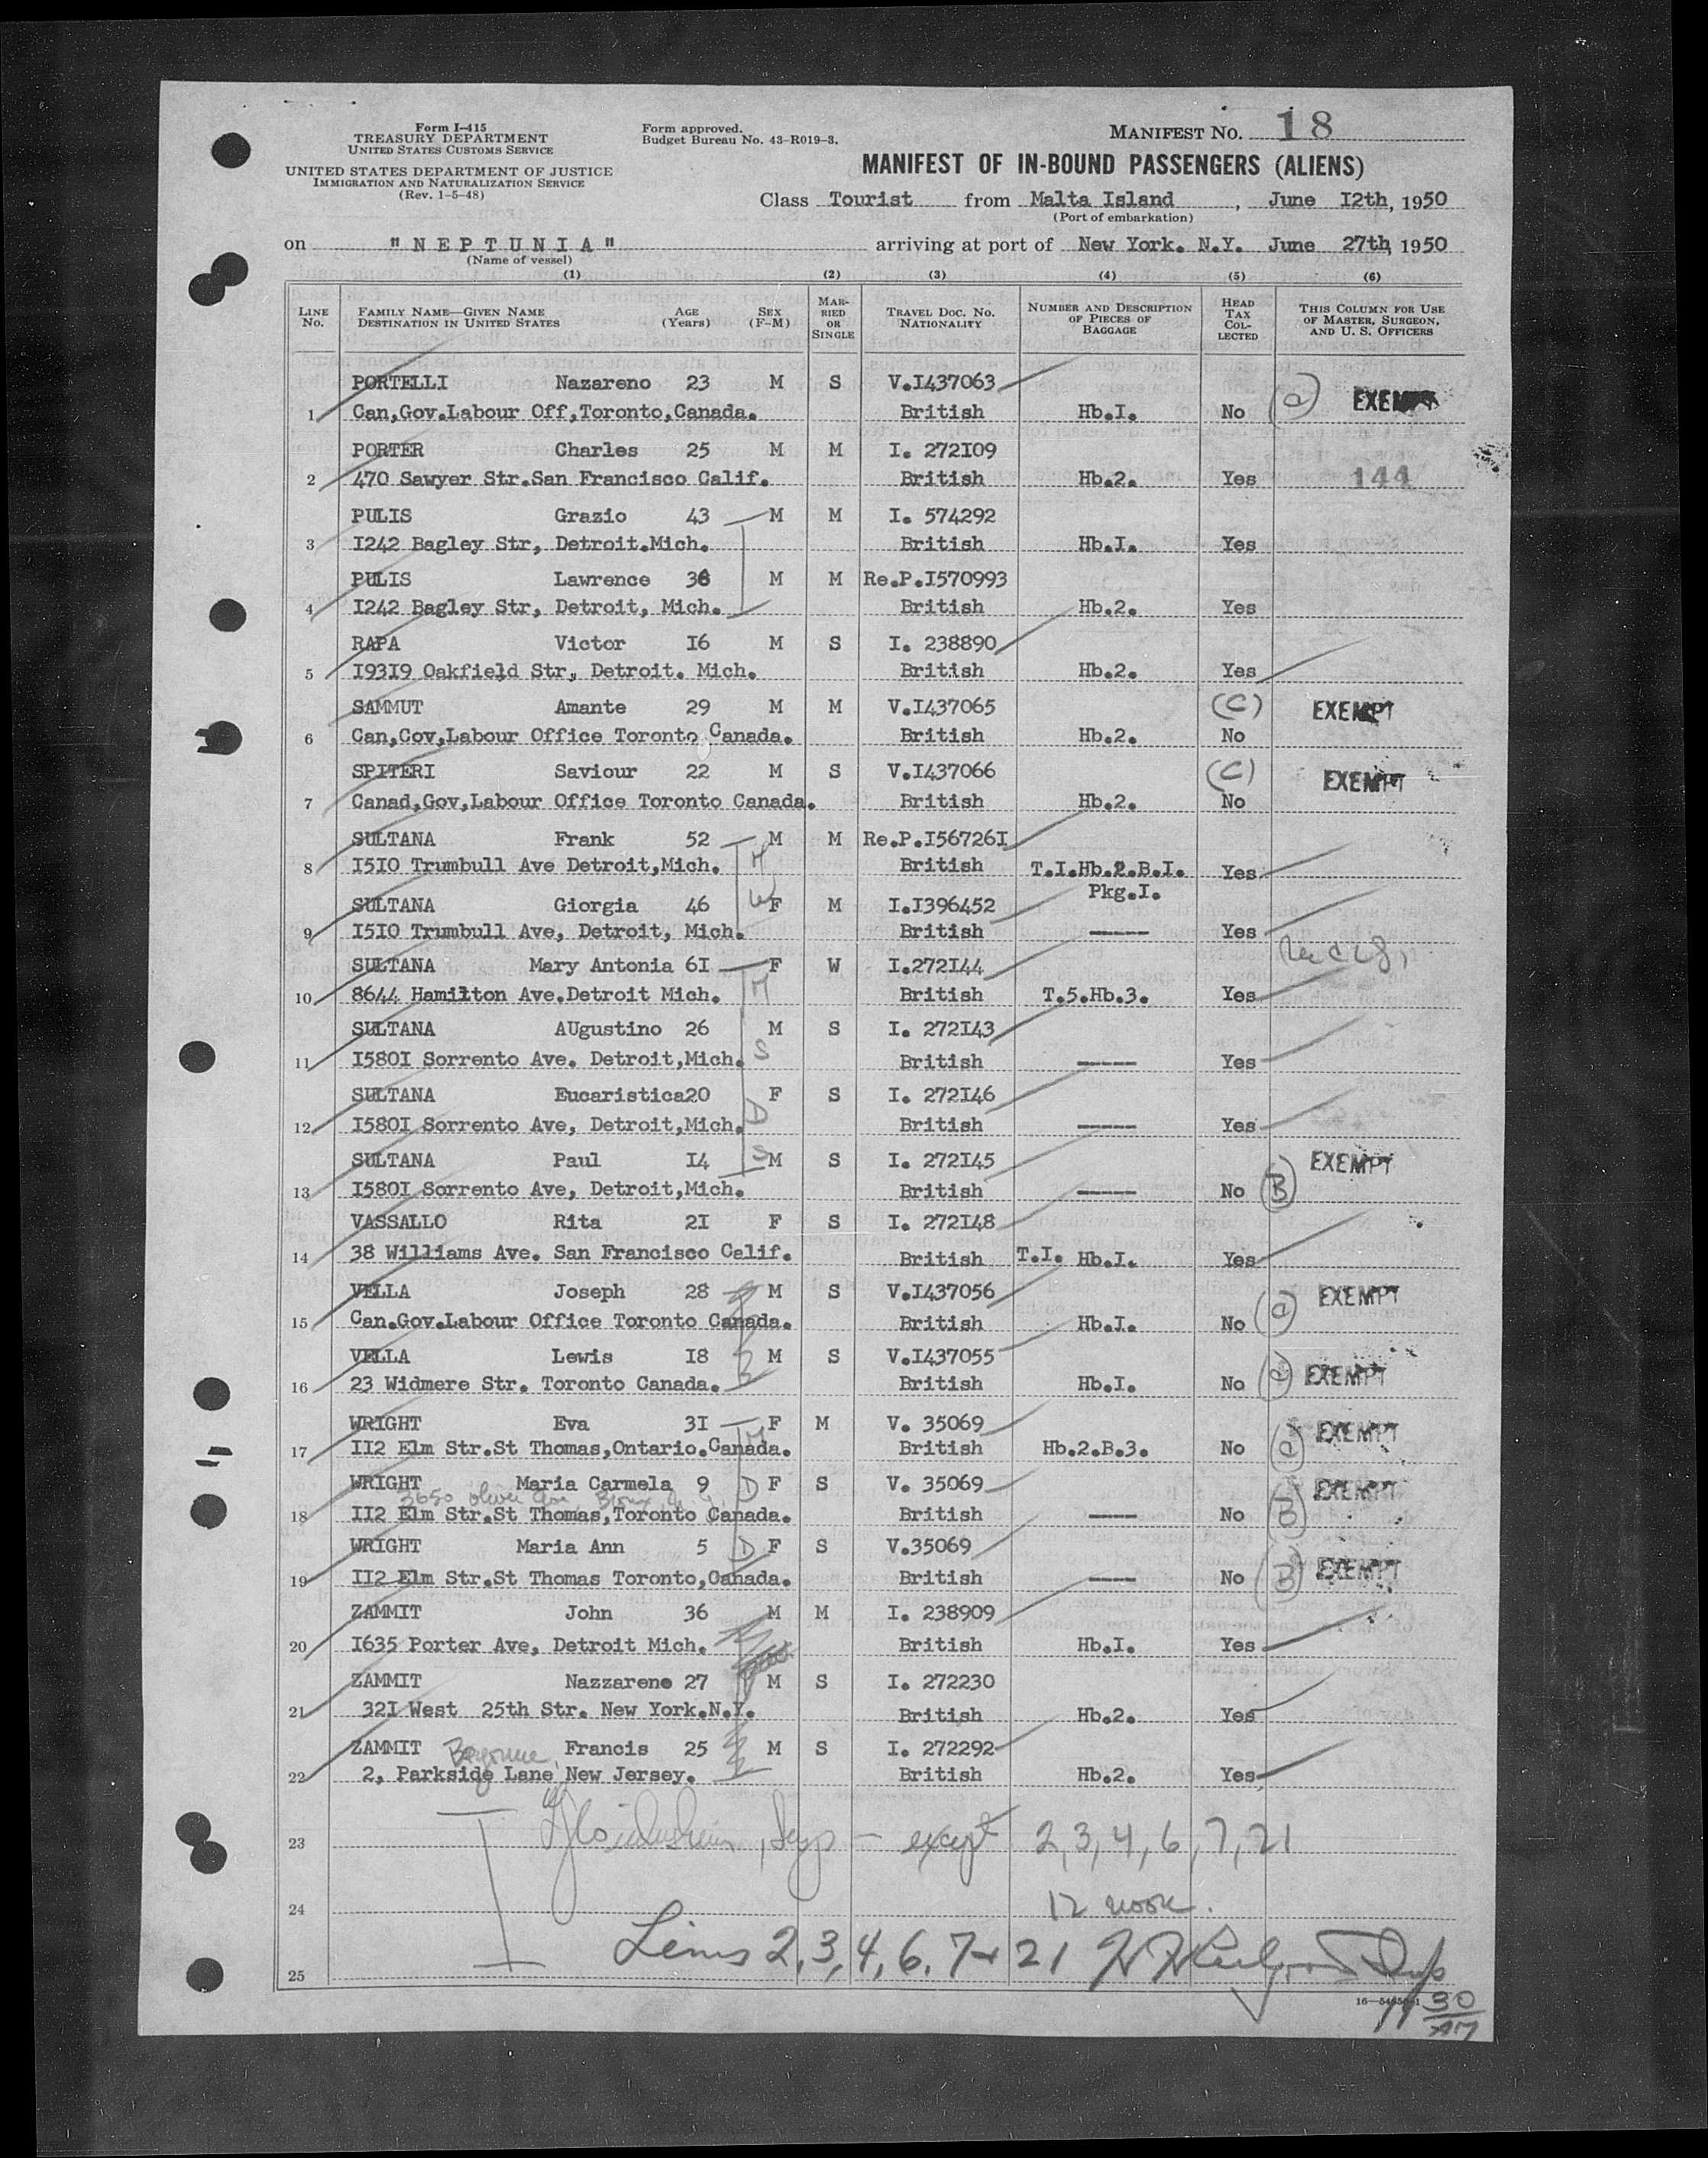 Form I-415
TREASURY DEPARTMENT
UNITED STATES CUSTOMS SERVICE
UNITED STATES DEPARTMENT OF JUSTICE
IMMIGRATION AND NATURALIZATION SERVICE
(Rev. 1-5-48)
Form approved.
Budget Bureau No. 43-R019-3.
MANIFEST NO. 18
MANIFEST OF IN-BOUND PASSENGERS (ALIENS)
Class Tourist from Malta Island, June I2th, 1950
(Port of embarkation)
on "NEPTUNIA" arriving at port of New York. N.Y. June 27th, 1950
(Name of vessel)
(1) (2) (3) (4) (5) (6)
LINE NO. FAMILY NAME—GIVEN NAME DESTINATION IN UNITED STATES AGE (Years) SEX (F-M) MARRIED OR SINGLE TRAVEL DOC. NO. NATIONALITY NUMBER AND DESCRIPTION OF PIECES OF BAGGAGE HEAD TAX COLLECTED THIS COLUMN FOR USE OF MASTER, SURGEON, AND U. S. OFFICERS
PORTELLI Nazareno 23 M S V.I437063 (a) EXEMPT
1 Can,Gov.Labour Off,Toronto,Canada. British Hb.I. No
PORTER Charles 25 M M I. 272I09
2 470 Sawyer Str.San Francisco Calif. British Hb.2. Yes 144
PULIS Grazio 43 M M I. 574292
3 I242 Bagley Str, Detroit.Mich. British Hb.I. Yes
PULIS Lawrence 36 M M Re.P.I570993
4 I242 Bagley Str, Detroit, Mich. British Hb.2. Yes
RAPA Victor I6 M S I. 238890
5 I93I9 Oakfield Str, Detroit. Mich. British Hb.2. Yes
SAMMUT Amante 29 M M V.I437065 (C) EXEMPT
6 Can,Cov,Labour Office Toronto Canada. British Hb.2. No
SPITERI Saviour 22 M S V.I437066 (C) EXEMPT
7 Canad,Gov,Labour Office Toronto Canada. British Hb.2. No
SULTANA Frank 52 M M Re.P.I56726I
8 I5I0 Trumbull Ave Detroit,Mich. H British T.I.Hb.2.B.I. Yes
Pkg.I.
SULTANA Giorgia 46 W F M I.I396452
9 I5I0 Trumbull Ave, Detroit, Mich. British ----- Yes
SULTANA Mary Antonia 6I F W I.272I44
10 8644 Hamilton Ave.Detroit Mich. M British T.5.Hb.3. Yes
SULTANA AUgustino 26 M S I. 272I43
11 I580I Sorrento Ave. Detroit,Mich. S British ----- Yes
SULTANA Eucaristica20 F S I. 272I46
12 I580I Sorrento Ave, Detroit,Mich. D British ----- Yes
SULTANA Paul I4 S M S I. 272I45 EXEMPT
13 I580I Sorrento Ave, Detroit,Mich. British ----- No (B)
VASSALLO Rita 2I F S I. 272I48
14 38 Williams Ave. San Francisco Calif. British T.I. Hb.I. Yes
VELLA Joseph 28 M S V.I437056 EXEMPT
15 Can.Gov.Labour Office Toronto Canada. British Hb.I. No (a)
VELLA Lewis I8 M S V.I437055
16 23 Widmere Str. Toronto Canada. B British Hb.I. No (c) EXEMPT
WRIGHT Eva 3I F M V. 35069 EXEMPT
17 II2 Elm Str.St Thomas,Ontario.Canada. M British Hb.2.B.3. No (a)
WRIGHT Maria Carmela 9 D F S V. 35069 EXEMPT
3650 Olive Ave, Bronx
18 II2 Elm Str.St Thomas,Toronto Canada. British ---- No (B)
WRIGHT Maria Ann 5 D F S V.35069 EXEMPT
19 II2 Elm Str.St Thomas Toronto,Canada. British ---- No (B)
ZAMMIT John 36 M M I. 238909
20 I635 Porter Ave, Detroit Mich. British Hb.I. Yes
ZAMMIT Nazzareno 27 M S I. 272230
21 32I West 25th Str. New York.N.Y. British Hb.2. Yes
ZAMMIT Francis 25 M S I. 272292
Bayonne
22 2, Parkside Lane New Jersey. British Hb.2. Yes
23 Insp - except 2, 3, 4, 6, 7, 21
24 12 noon.
25 Lines 2, 3, 4, 6, 7 + 21 Insp
30